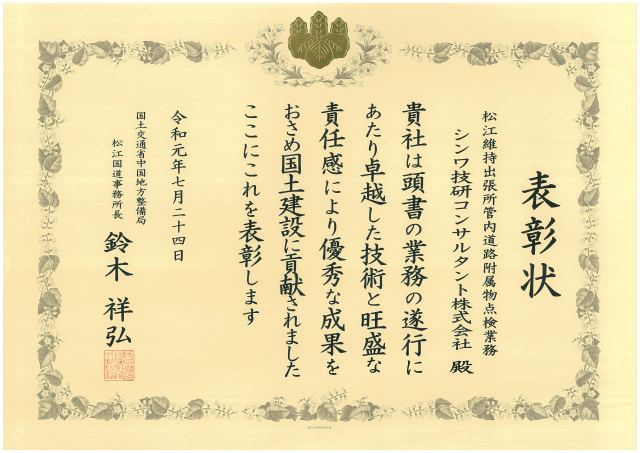 表彰状
松江維持出張所管内道路附属物点検業務
シンワ技研コンサルタント株式会社 殿
貴社は頭書の業務の遂行に
あたり卓越した技術と旺盛な
責任感により優秀な成果を
おさめ国土建設に貢献されました
ここにこれを表彰します
令和元年七月二十四日
国土交通省中国地方整備局
松江国道事務所長 鈴木 祥弘